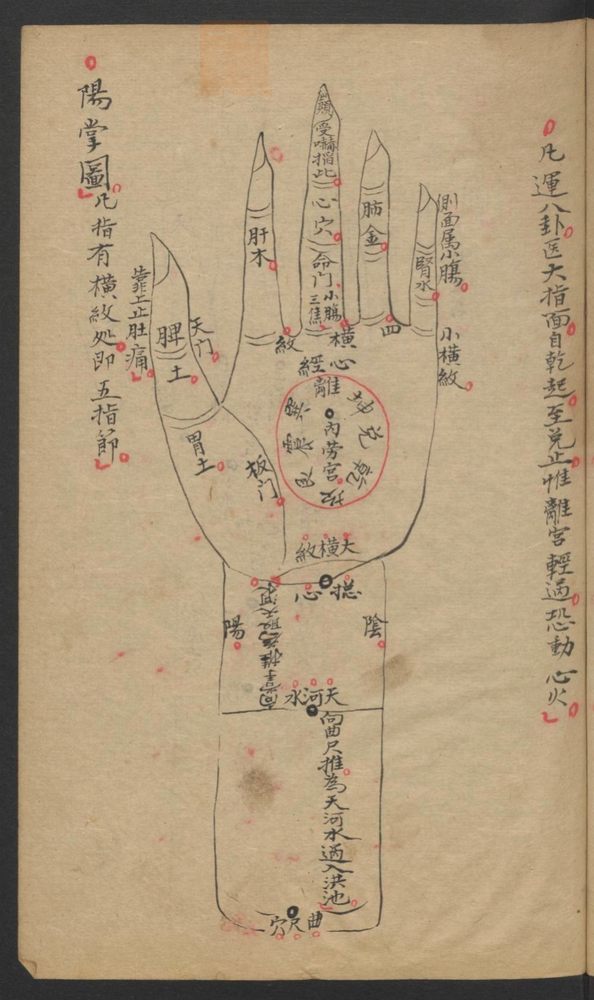 凡運八卦医大指面自乾起至兌止惟離宮輕過恐動心火
側面属小膓
小橫紋
腎水
肺金
受嚇掐此
心穴
命門
小膓
三焦
肝木
四橫紋
天门
脾土
靠上止肚痛
胃土
板门
心經
離
坤
兌
乾
坎
艮
震
巽
內劳宮
大橫紋
総心
陰
陽
天河水
向曲尺推為天河水過入洪池
曲尺穴
陽掌圖
凡指有橫紋处即五指節